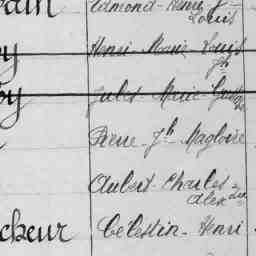 Edmond-Henri-J-
Louis
Henri Marie Louis
Jh
Jules Marie Gust
Pierre Jh Magloire
Aubert Charles-
Alexdre
cheur Célestin-Henri